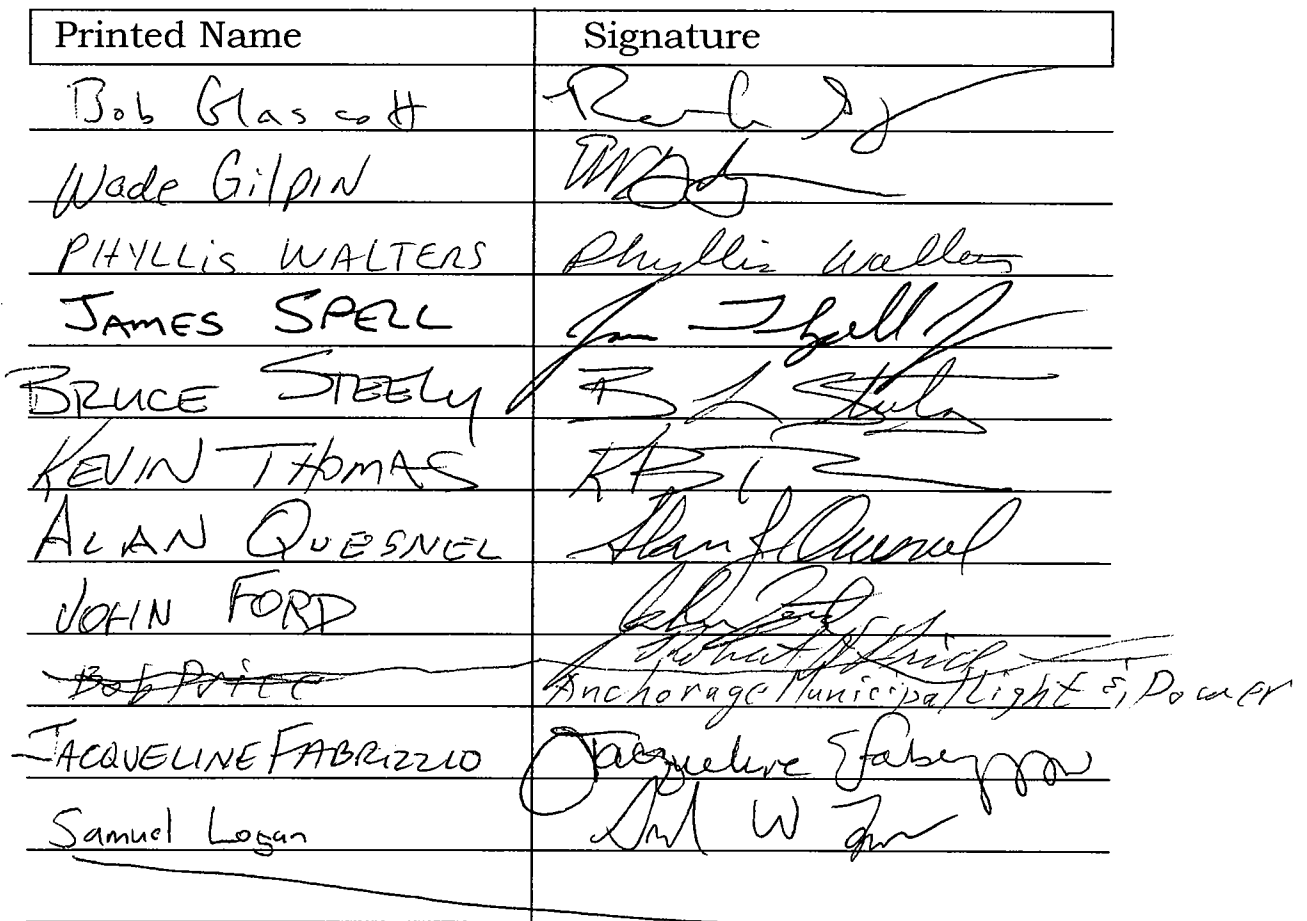 Printed Name Signature
Bob Glascott
Wade Gilpin
PHYLLiS WALTERS Phyllis Walters
JAMES SPELL
BRUCE STEELY
KEVIN THOMAS
ALAN QUESNEL Alan J Quesnel
JOHN FORD John Ford
Bob Price Robert Price
Anchorage Municipal Light & Power
JACQUELINE FABRIZZIO Jacqueline
Samuel Logan